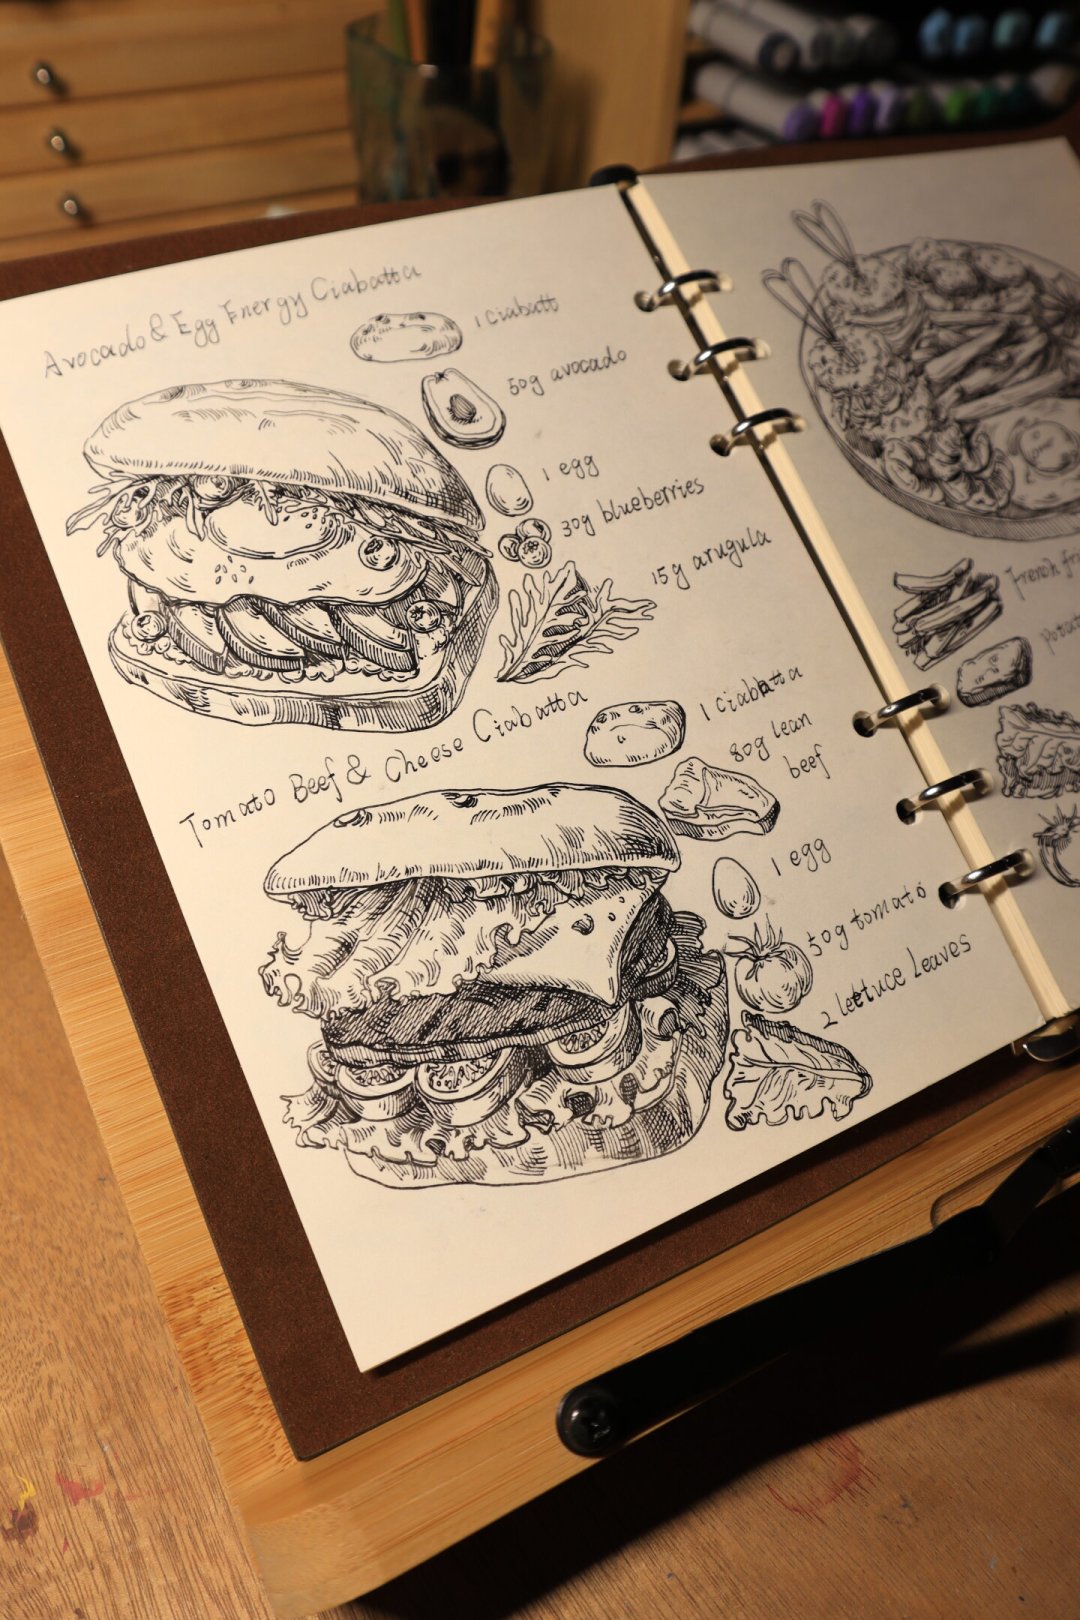 Avocado & Egg Energy Ciabatta
1 Ciabatt
50g avocado
1 egg
30g blueberries
15g arugula
Tomato Beef & Cheese Ciabatta
1 Ciabatta
80g lean
beef
1 egg
50g tomato
2 lettuce Leaves
French